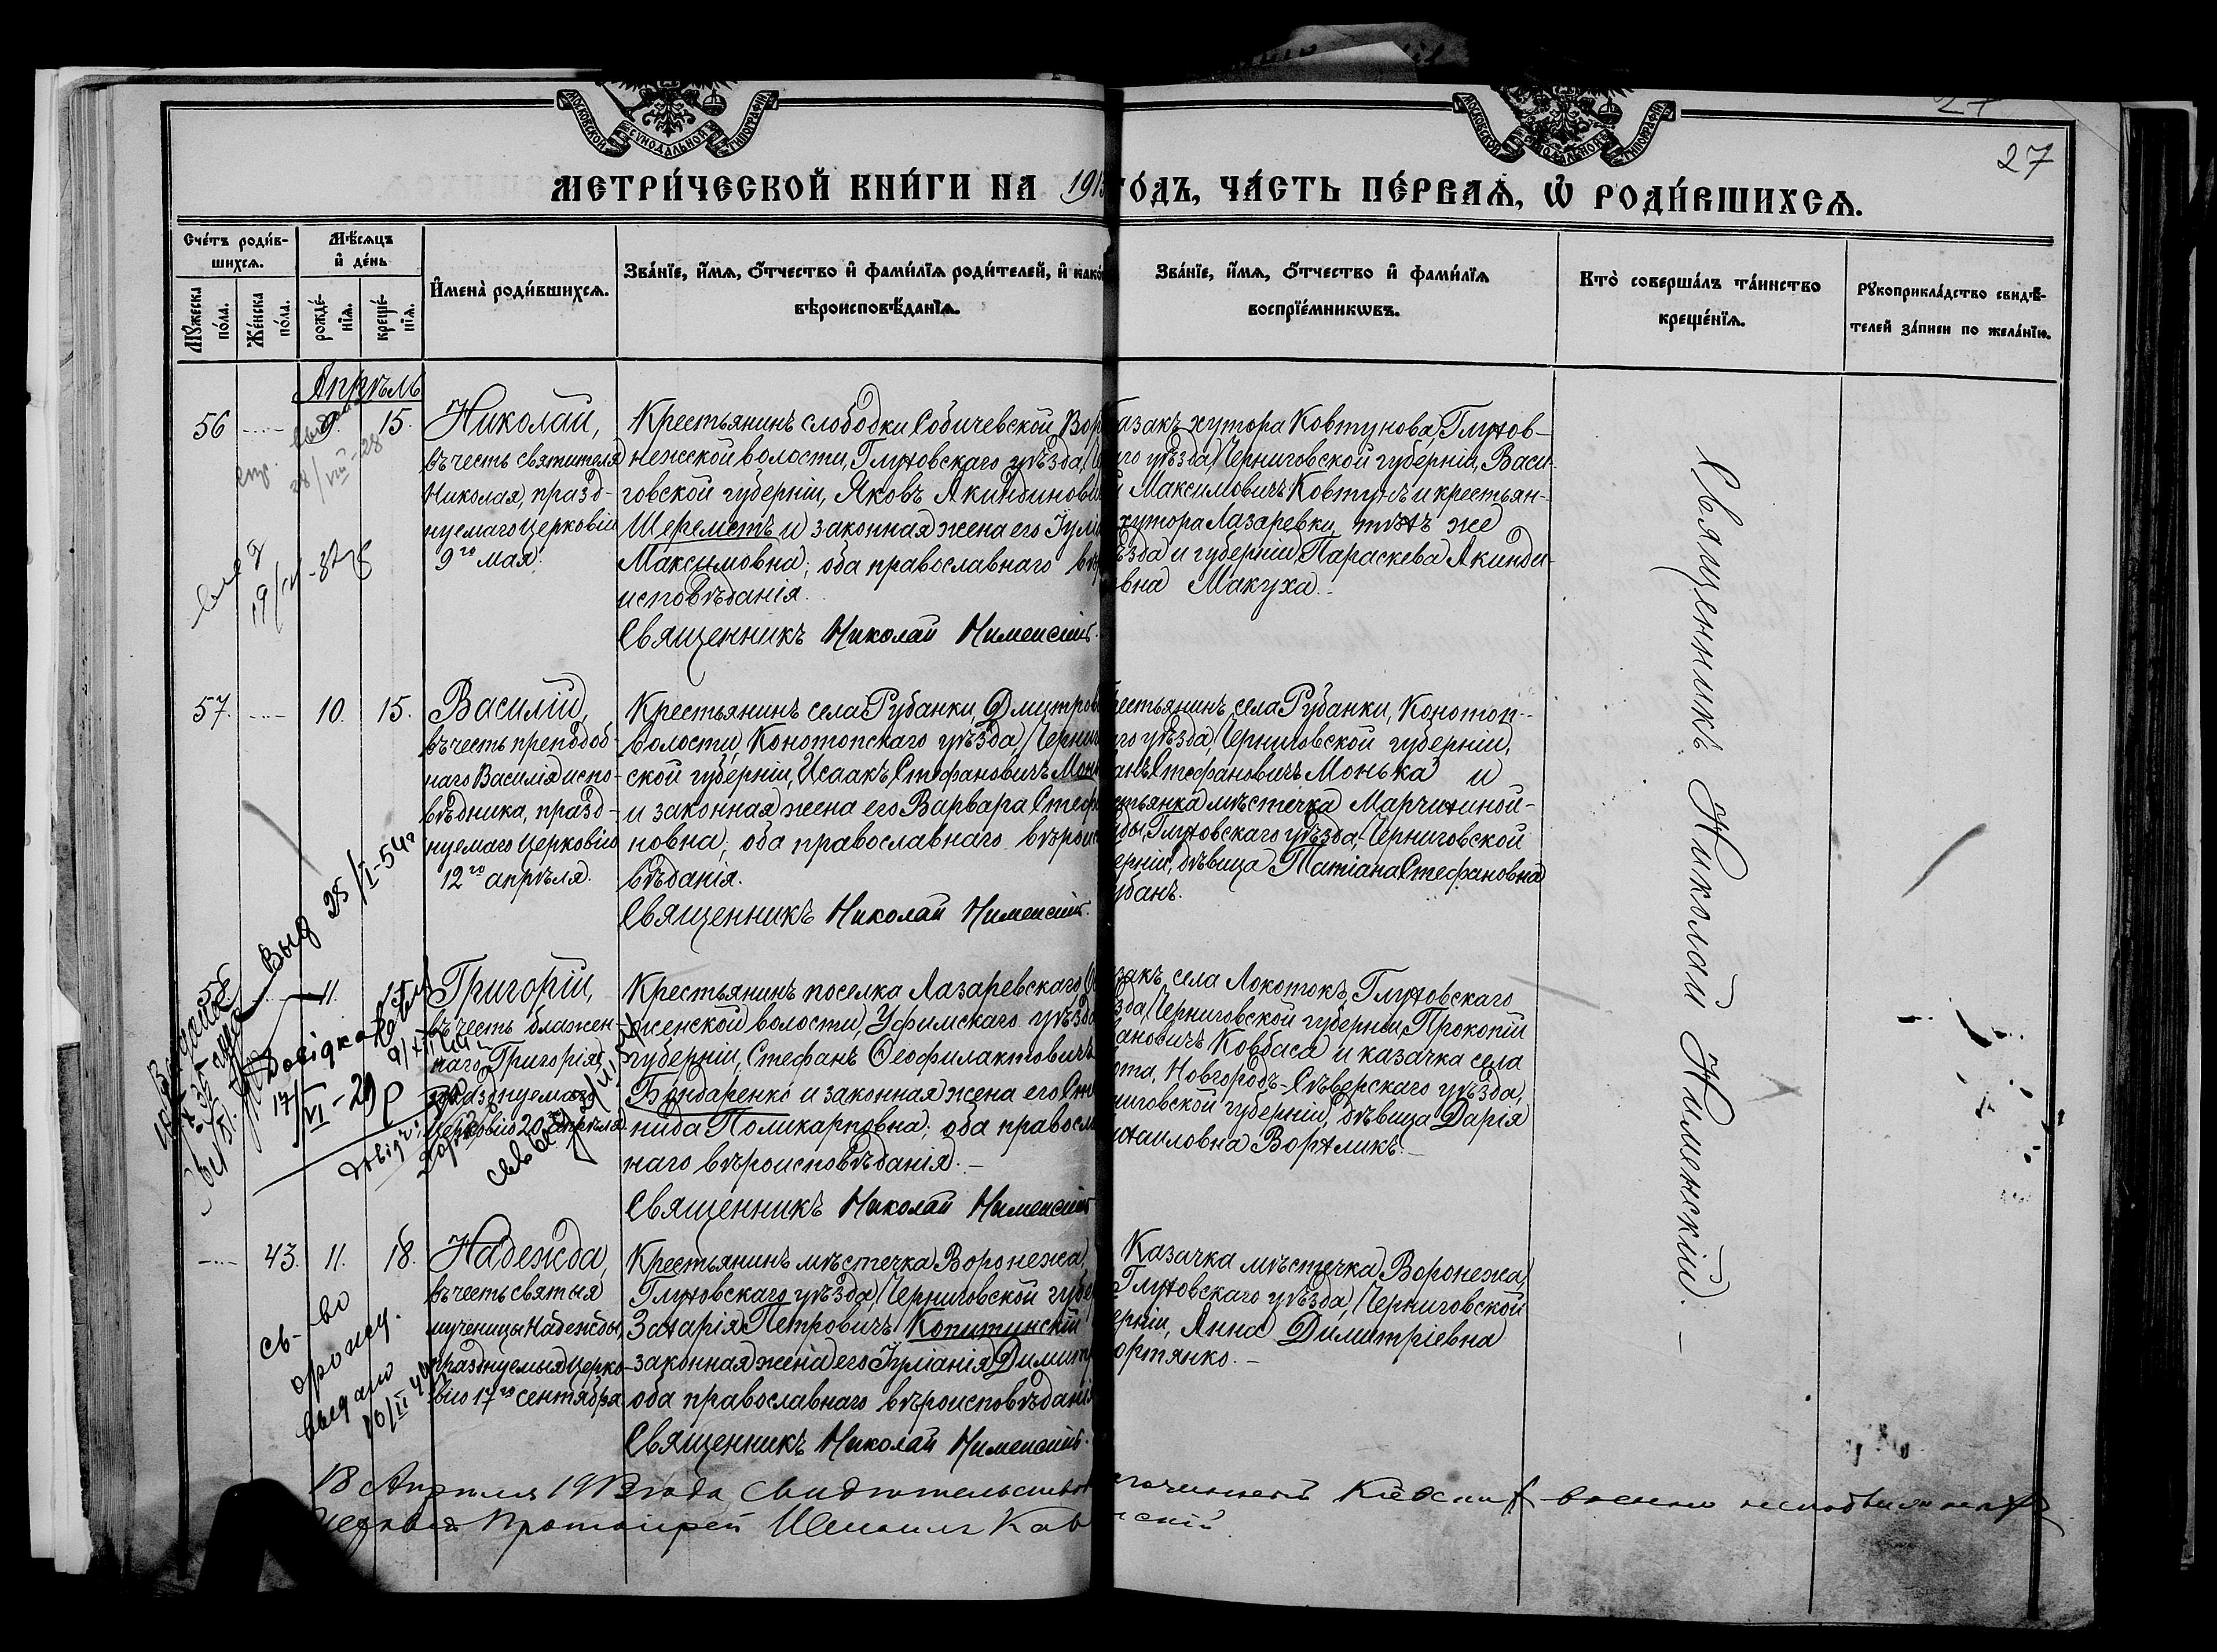 МОСКОВСКОЙ СѴНОДАЛЬНОЙ ТИПОГРАФІИ
МОСКОВСКОЙ СѴНОДАЛЬНОЙ ТИПОГРАФІИ
27
27
МЕТРИ́ЧЕСКОЙ КНИ́ГИ НА 191
ГО́ДЪ, ЧА́СТЬ ПЕ́РВАѦ, Ѡ҆ РОДИ́ВШИХСѦ.
Сче́тъ роди́в-
шихсѧ.
Мѣ́сѧцъ
и҆ де́нь
Мꙋ́жеска
по́ла.
Же́нска
по́ла.
рожде́-
нїѧ.
креще́-
нїѧ.
И҆мена̀ роди́вшихсѧ.
Зва́нїе, и҆́мѧ, ѻ҆́тчество и҆ фами́лїѧ роди́телей, и҆ как
вѣроисповѣ́данїѧ.
Зва́нїе, и҆́мѧ, ѻ҆́тчество и҆ фами́лїѧ
воспрїе́мникѡвъ.
Кто̀ соверша́лъ та́инство
креще́нїѧ.
Рꙋкоприкла́дство свидѣ́-
телей за́писи по жела́нїю.
Апрѣль
56 9 15.
28/VIII-28
19/ -32
Николай,
въ честь святителя
Николая, празд-
нуемаго Церковію
9го мая.
Крестьянинъ слободки Собичевской Вор
нежской волости, Глуховскаго уѣзда, Че
говской губерніи, Яковъ Акиндинови
Шереметъ и законная жена его Іулі
Максимовна; оба православнаго вѣ
исповѣданія.
Священникъ Николай Нименскій.
азакъ хутора Ковтунова, Глухов-
аго уѣзда, Черниговской губерніи, Васи-
й Максимовичъ Ковтунъ и крестьян-
хутора Лазаревки, тѣхъ же
ѣзда и губерніи, Параскева Акинди-
овна Макуха.
57. 10. 15.
Василій,
въ честь преподоб-
наго Василія испо-
вѣдника, празд-
нуемаго Церковію
12го апрѣля.
Крестьянинъ села Рубанки, Дмитров
волости, Конотопскаго уѣзда, Черниг
ской губерніи, Исаакъ Стефановичъ Монь
и законная жена его Варвара Стеф
новна; оба православнаго вѣроис
вѣданія.
Священникъ Николай Нименскій.
рестьянинъ села Рубанки, Конотоп-
аго уѣзда, Черниговской губерніи,
анъ Стефановичъ Монька и
стьянка мѣстечка Марчихиной-
ды, Глуховскаго уѣзда, Черниговской
ерніи, дѣвица Татіана Стефановна
убанъ.
Выд 25/I-54г
58. 11. 15.
Григорій,
въ честь блажен-
наго Григорія,
празднуемаго
Церковію 20 апрѣля.
Довідка
17/VI-29р
Крестьянинъ поселка Лазаревскаго,
женской волости, Уфимскаго уѣзда
губерніи, Стефанъ Ѳеофилактовичъ
Бондаренко и законная жена его Сте
нида Поликарповна; оба правосла
наго вѣроисповѣданія.
Священникъ Николай Нименскій
закъ села Локотокъ, Глуховскаго
зда, Черниговской губерніи, Прокопій
вановичъ Ковбаса и казачка села
ота, Новгородъ-Сѣверскаго уѣзда,
ниговской губерніи, дѣвица Дарія
ихаиловна Ворхликъ.
43. 11. 18.
Надежда,
въ честь святыя
мученицы Надежды,
празднуемыя Церко-
вію 17го сентября
св-во
выдано
10/II 44
Крестьянинъ мѣстечка Воронежа,
Глуховскаго уѣзда, Черниговской губе
Захарія Петровичъ Копитинскій
законная жена его Іуліанія Димит
оба православнаго вѣроисповѣдані
Священникъ Николай Нименскій.
Казачка мѣстечка Воронежа,
Глуховскаго уѣзда, Черниговской
ерніи, Анна Димитріевна
ортянко.
Священникъ Николай Нименскій.
18 Апреля 1913 года Свидѣтельствов
Протоіерей